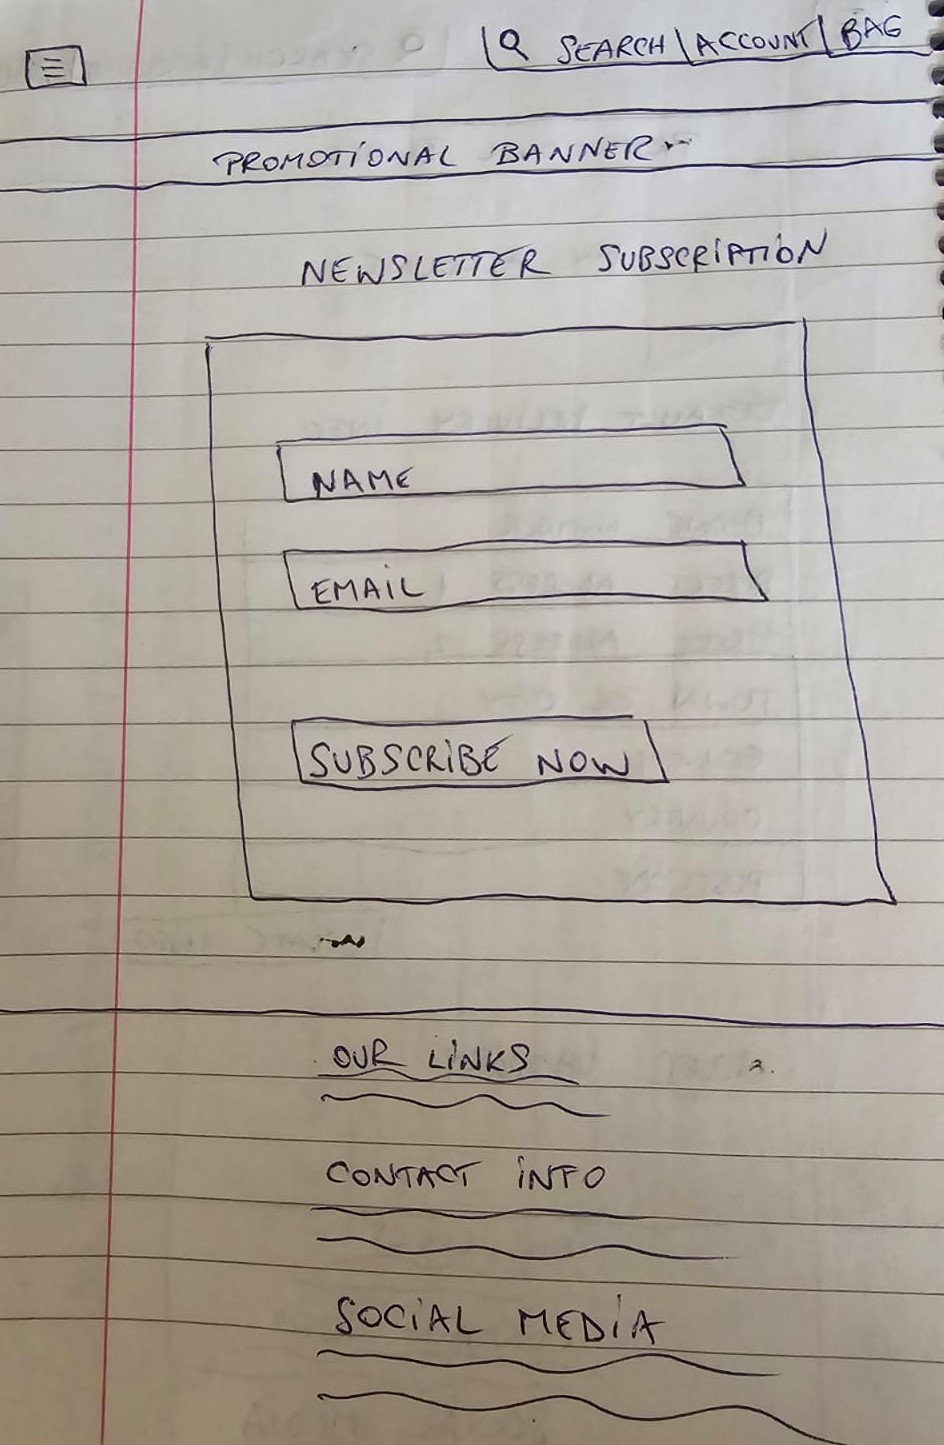 SEARCH | ACCOUNT | BAG
PROMOTIONAL BANNER
NEWSLETTER SUBSCRIPTION
NAME
EMAIL
SUBSCRIBE NOW
OUR LINKS
CONTACT INFO
SOCIAL MEDIA